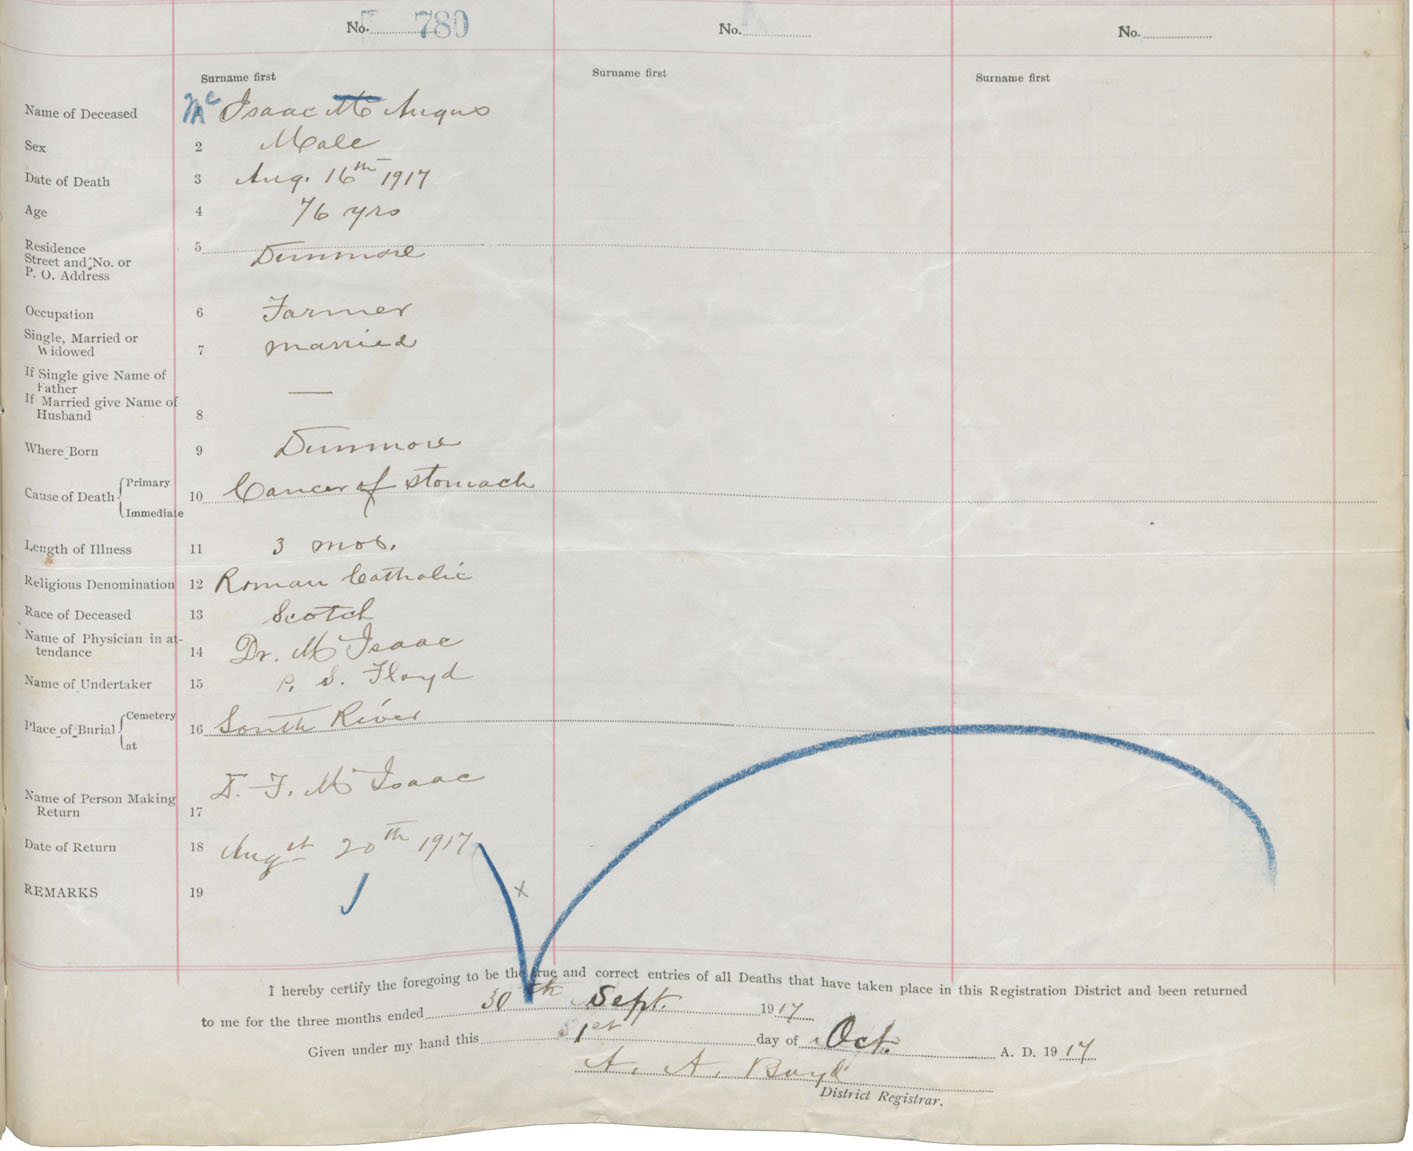 No. 780 No. No.
Surname first Surname first Surname first
Name of Deceased Mc Isaac Mc Angus
Sex 2 Male
Date of Death 3 Aug. 16th 1917
Age 4 76 yrs
Residence 5
Street and No. or Dunmore
P. O. Address
Occupation 6 Farmer
Single, Married or
Widowed 7 Married
If Single give Name of
Father
If Married give Name of —
Husband 8
Where Born 9 Dunmore
Cause of Death Primary
10 Cancer of stomach
Immediate
Length of Illness 11 3 mos.
Religious Denomination 12 Roman Catholic
Race of Deceased 13 Scotch
Name of Physician in at-
tendance 14 Dr. Mc Isaac
Name of Undertaker 15 P. S. Floyd
Place of Burial Cemetery
16 South River
at
Name of Person Making D. F. Mc Isaac
Return 17
Date of Return 18 Augst 20th 1917
REMARKS 19
x
I hereby certify the foregoing to be the true and correct entries of all Deaths that have taken place in this Registration District and been returned
to me for the three months ended 30th Sept. 1917
Given under my hand this 1st day of Oct. A. D. 1917
A. A. Boyd
District Registrar.